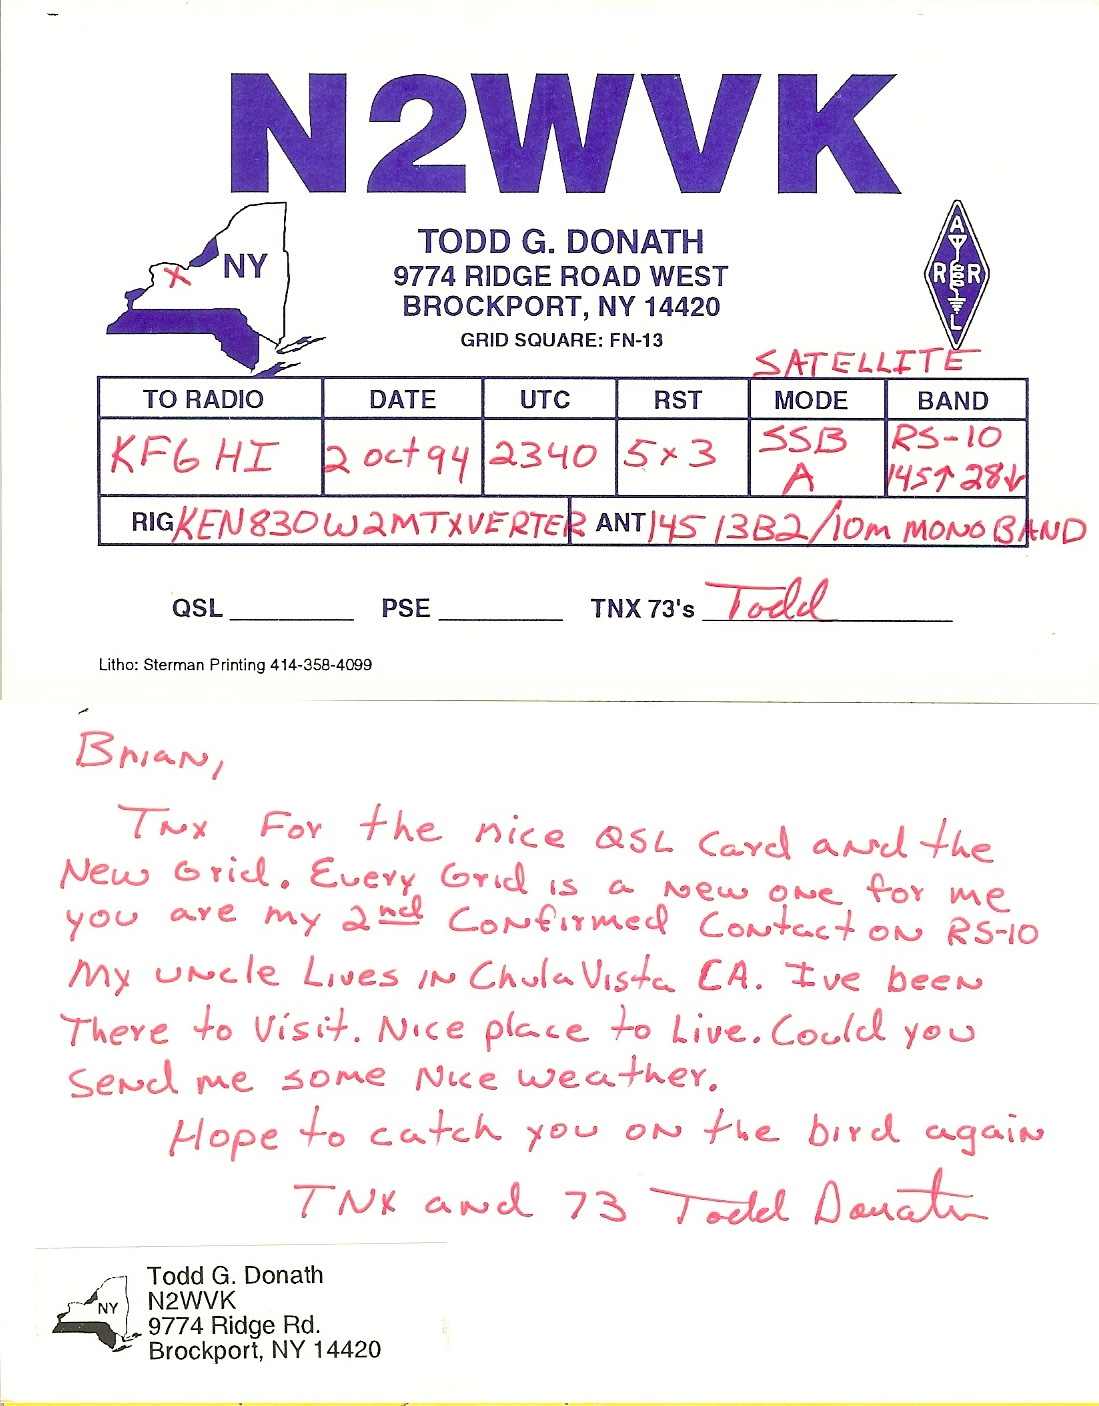 N2WVK
NY
X
TODD G. DONATH
9774 RIDGE ROAD WEST
BROCKPORT, NY 14420
GRID SQUARE: FN-13
A
R R
L
SATELLITE
TO RADIO DATE UTC RST MODE BAND
KF6HI 2 Oct 94 2340 5x3 SSB RS-10
A 145↑28↓
RIG KEN830W2MTXVERTER ANT 145 13B2/10m MONOBAND
QSL PSE TNX 73's Todd
Litho: Sterman Printing 414-358-4099
Brian,
Tnx For the nice QSL Card and the
New Grid. Every Grid is a new one for me
you are my 2nd Confirmed Contact on RS-10
My uncle Lives in Chula Vista CA. I've been
There to Visit. Nice place to Live. Could you
Send me some Nice weather.
Hope to catch you on the bird again
TNX and 73 Todd Donath
NY
Todd G. Donath
N2WVK
9774 Ridge Rd.
Brockport, NY 14420